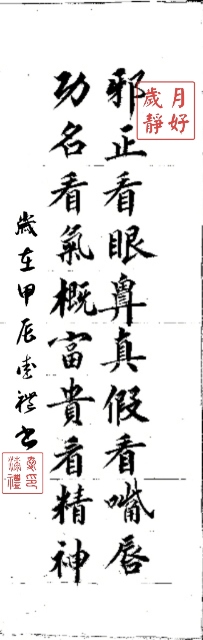 邪正看眼鼻真假看嘴唇
功名看氣概富貴看精神
歲在甲辰書禮書
月好
歲靜